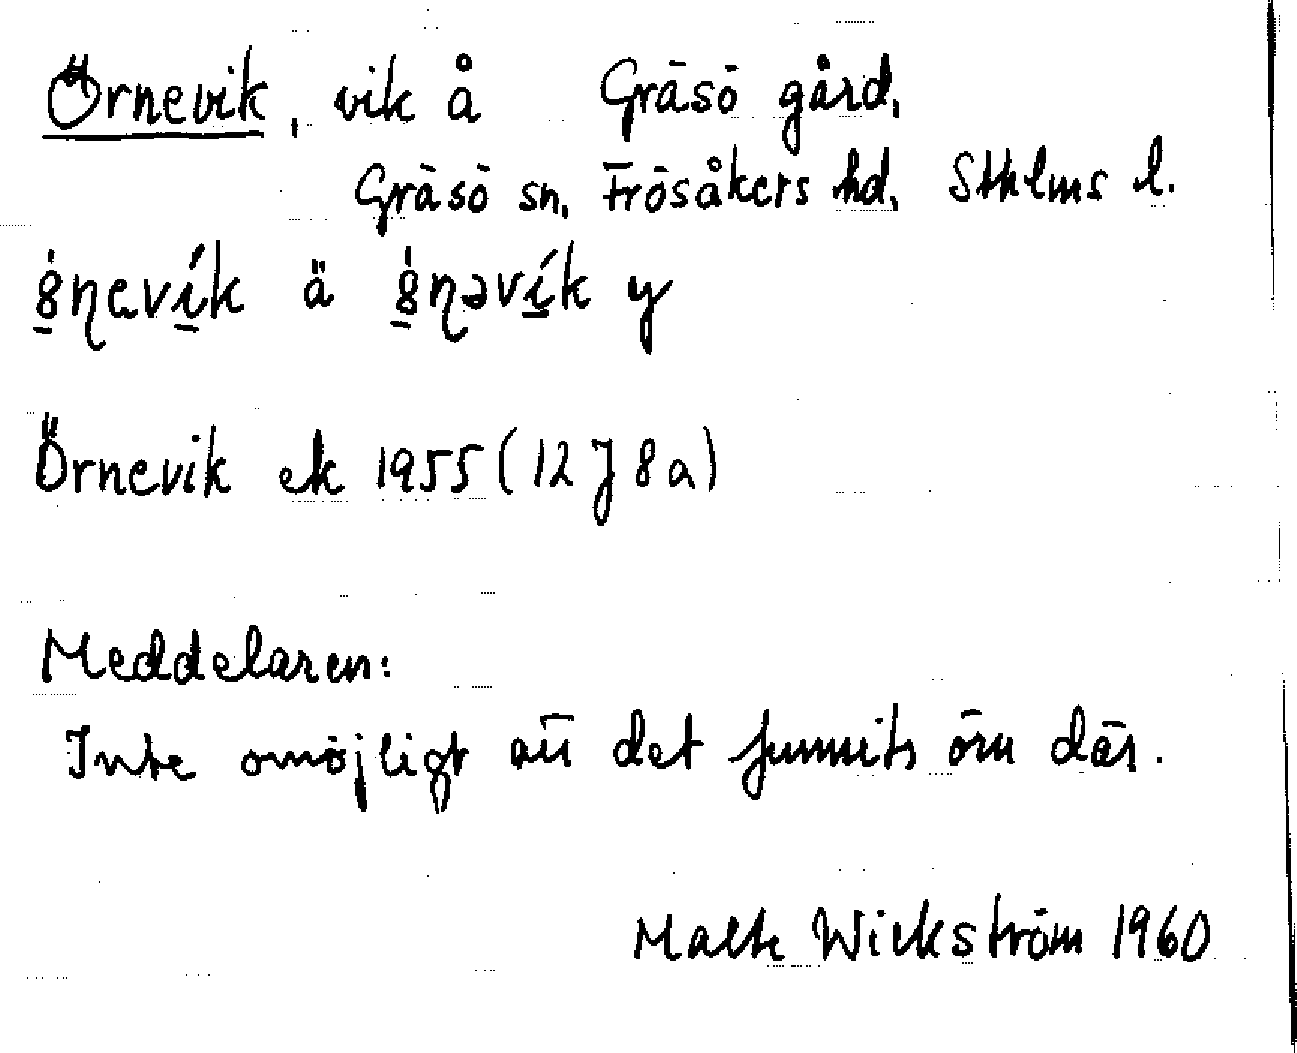 Örnevik, vik å Gräsö gård,
Gräsö sn, Frösåkers hd, Sthlms l.
ä y
Örnevik ek 1955 (12 J 8 a)
Meddelaren:
Inte omöjligt att det funnits örn där.
Malte Wickström 1960